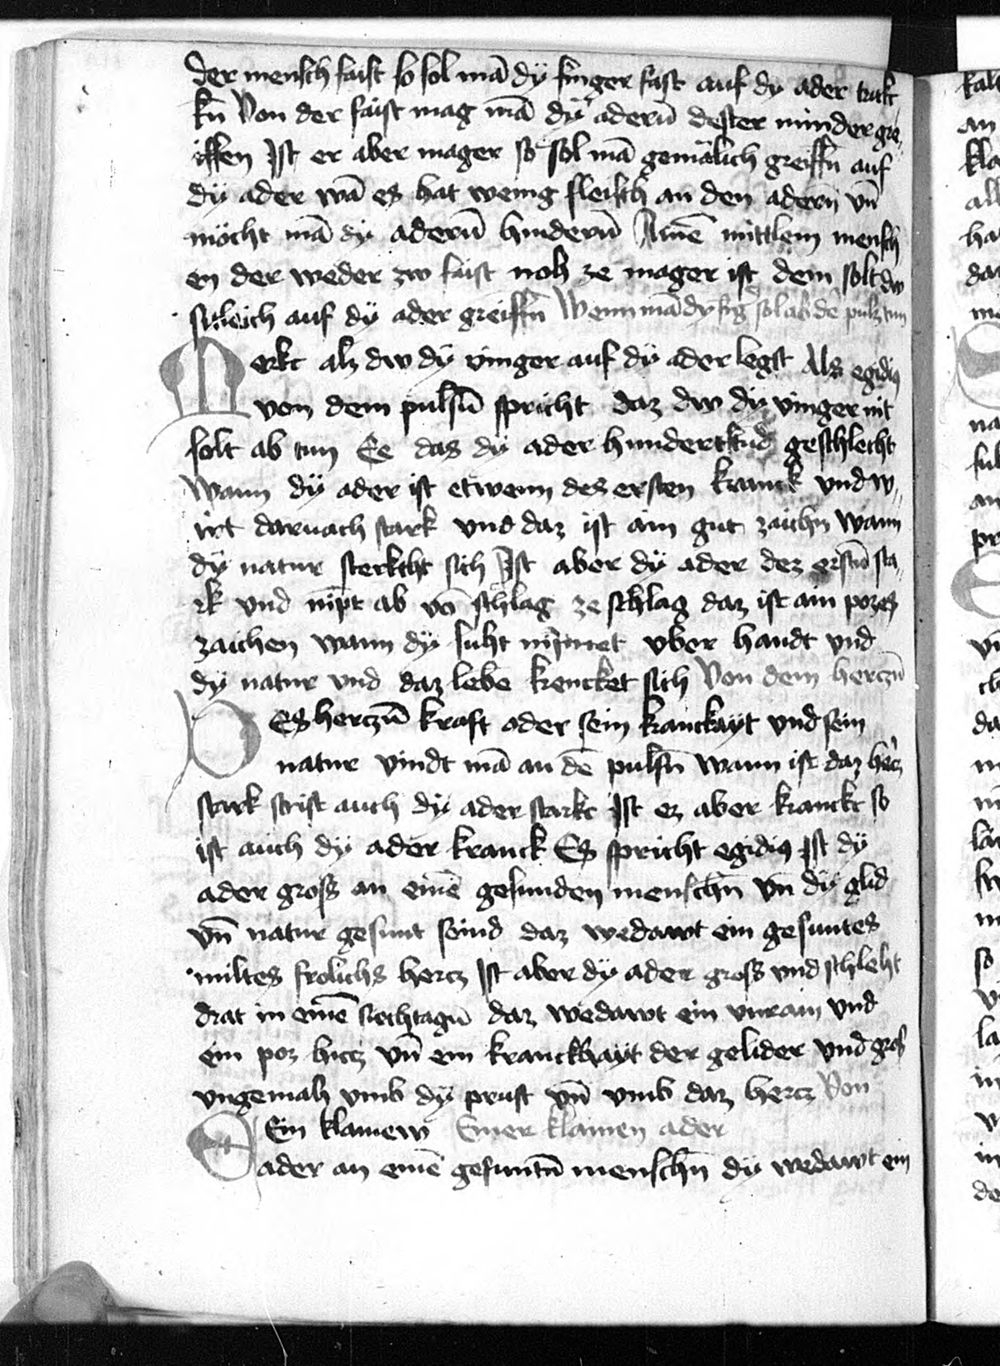 der mensch faist so sol mā dÿ finger fast auf dy ader truk
kn̄ Von der faist mag mā dÿ adern̄ dester minder gre„
iffen Jst er aber mager so sol mā gemälich greiffn̄ auf
dÿ ader wā es hat wenig fleisch an den adern̄ vn̄
möcht mā dÿ adern̄ hindern̄ Ainē mittlem mensch
en der weder zw faist noh ze mager ist dem solt dw
sitleich auf dÿ ader greiffn̄ Wenn mā dy fīg̃ sol ab dē puls tun
Merkt alz dw dÿ vinger auf dÿ ader legst Als egidiꝯ
von dem pulsn̄ spricht daz dw dÿ vinger nit
solt ab tun Ee das dÿ ader hundertstūd geschlecht
Wann dÿ ader ist etwenn des ersten kranck vnd w„
irt darnach stark vnd daz ist ain gut zaichn̄ wann
dÿ natur sterkcht sich Jst aber dÿ ader dez erstn̄ sta„
rk vnd nīpt ab vō schlag ze schlag daz ist ain pozes
zaichen wann dÿ suht nimmet vber handt vnd
dÿ natur vnd daz lebē krencket sich Von dem herczn̄
Des herczn̄ kraft oder sein kranckayt vnd sein
natur vindt mā an dē pulsn̄ wann ist daz hercz
stark so ist auch dÿ ader starkt Jst ez aber kranckt so
ist auch dÿ ader kranck Es spricht egidiꝯ Jst dÿ
ader gross an einē gesunden menschn̄ vn̄ dÿ glid
vn̄ natur gesunt seind daz wedawt ein gesuntes
miltes frölichs hercz Jst aber dÿ ader gross vnd schleht
drat in einē siechtagn̄ daz wedawt ein vnrain vnd
ein poz hicz vn̄ ein kranckhayt der gelider vnd gros
vngemah vmb dÿ prust vn̄ vmb daz hercz Von
Ein klainew Einer klainen ader
ader an einē gesuntn̄ menschn̄ dÿ wedawt ein